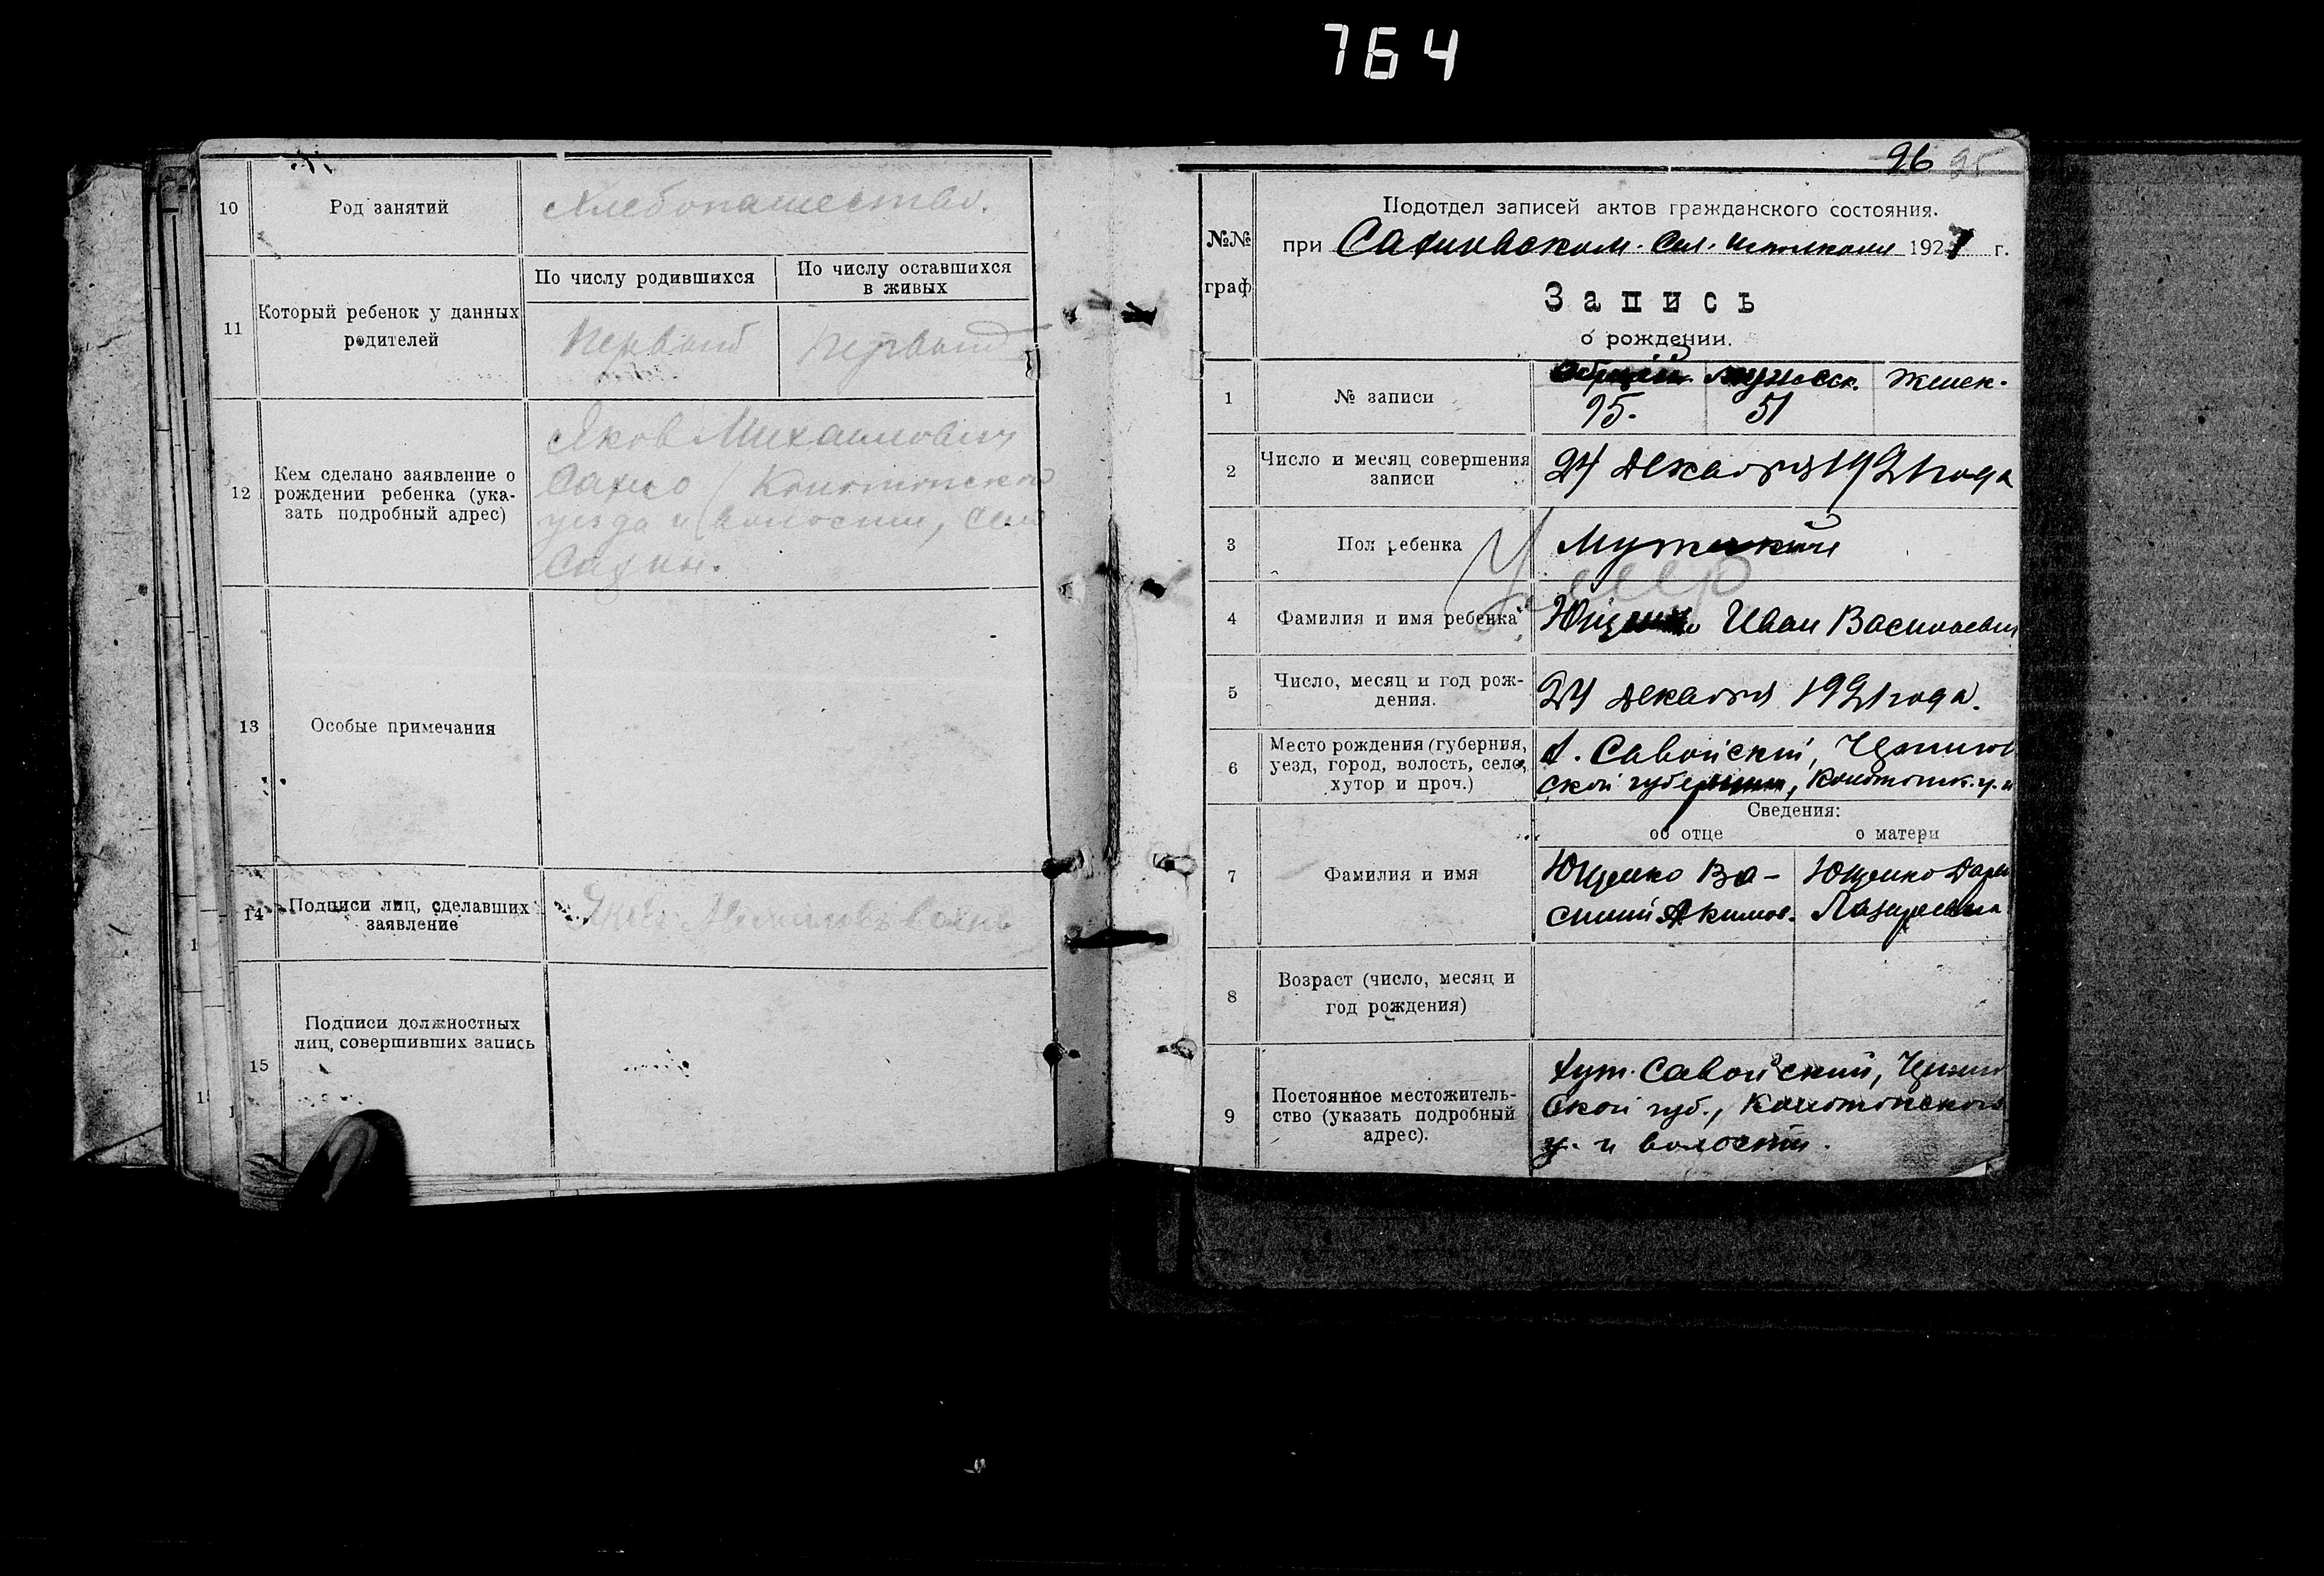 764
10
Род занятий
Хлебопашество.
11
Который ребенок у данных
родителей
По числу родившихся
По числу оставшихся
в живых
Первый
Первый
12
Кем сделано заявление о
рождении ребенка (ука-
зать подробный адрес)
Яков Михайлович
Сахно Конотопского
уезда и волости, село
Сахны.
13
Особые примечания
14
Подписи лиц, сделавших
заявление
15
Подписи должностных
лиц, совершивших запись
96 95
№№
граф
Подотдел записей актов гражданского состояния.
при Сахновском. Сел. Исполкоме 1921 г.
Запись
о рождении.
1
№ записи
Общий Мужеск. Женск.
95. 51
2
Число и месяц совершения
записи
24 Декабря 1921 года
3
Пол ребенка
Мужской
Умер
4
Фамилия и имя ребенка
Ющенко Иван Васильевич
5
Число, месяц и год рож-
дения.
24 Декабря 1921 года.
6
Место рождения (губерния,
уезд, город, волость, село,
хутор и проч.)
х. Савойский, Чернигов
ской губернии, Конотопск. у. и
Сведения:
об отце
о матери
7
Фамилия и имя
Ющенко Ва-
силий Акимов.
Ющенко Дарья
Лазаревна
8
Возраст (число, месяц и
год рождения)
9
Постоянное местожитель-
ство (указать подробный
адрес).
хут. Савойский, Чернигов
ской губ., Конотопского
у. и волости.